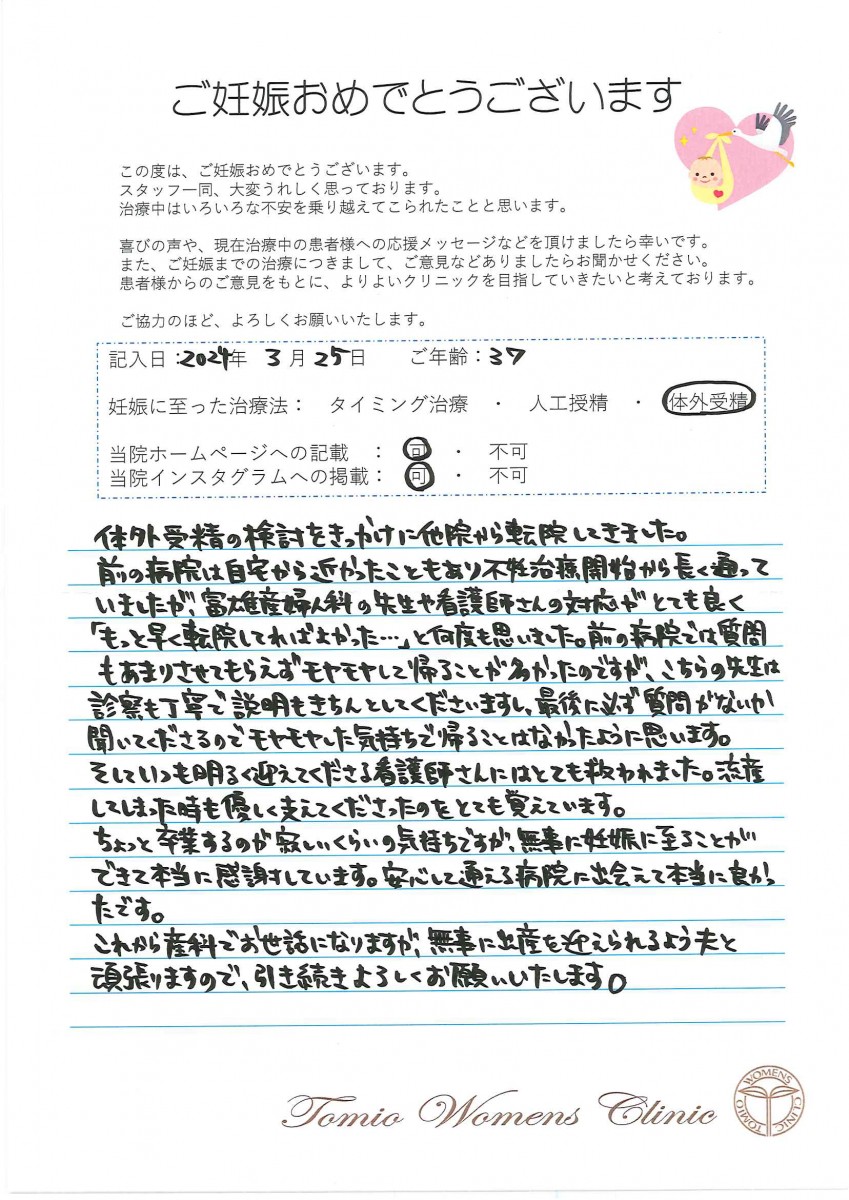 ご妊娠おめでとうございます
この度は、ご妊娠おめでとうございます。
スタッフ一同、大変うれしく思っております。
治療中はいろいろな不安を乗り越えてこられたことと思います。
喜びの声や、現在治療中の患者様への応援メッセージなどを頂けましたら幸いです。
また、ご妊娠までの治療につきまして、ご意見などありましたらお聞かせください。
患者様からのご意見をもとに、よりよいクリニックを目指していきたいと考えております。
ご協力のほど、よろしくお願いいたします。
記入日：2024年 3月25日 ご年齢：37
妊娠に至った治療法： タイミング治療 ・ 人工授精 ・ 体外受精
当院ホームページへの記載 ： 可 ・ 不可
当院インスタグラムへの掲載： 可 ・ 不可
体外受精の検討をきっかけに他院から転院してきました。
前の病院は自宅から近かったこともあり不妊治療開始から長く通って
いましたが、富雄産婦人科の先生や看護師さんの対応がとても良く
「もっと早く転院してればよかった…」と何度も思いました。前の病院では質問
もあまりさせてもらえずモヤモヤして帰ることが多かったのですが、こちらの先生は
診察も丁寧で説明もきちんとしてくださいますし、最後に必ず質問がないか
聞いてくださるのでモヤモヤした気持ちで帰ることはなかったように思います。
そしていつも明るく迎えてくださる看護師さんにはとても救われました。流産
してしまった時も優しく支えてくださったのをとても覚えています。
ちょっと卒業するのが寂しいくらいの気持ちですが、無事に妊娠に至ることが
できて本当に感謝しています。安心して通える病院に出会えて本当に良かっ
たです。
これから産科でお世話になりますが、無事に出産を迎えられるよう夫と
頑張りますので、引き続きよろしくお願いいたします。
Tomio Womens Clinic
TOMIO WOMENS CLINIC